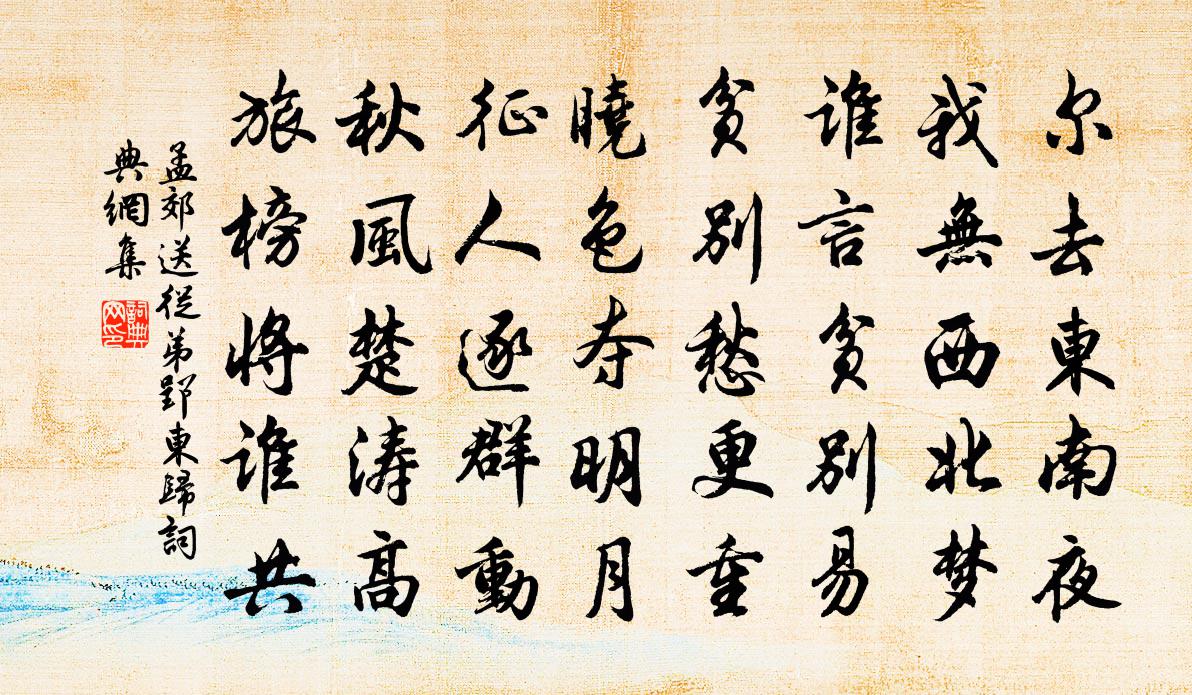 尔去東南夜
我無西北梦
谁言貧别易
貧别愁更重
曉色夺明月
征人逐群動
秋風楚涛高
旅榜將谁共
孟郊送從弟郢東歸詞
典網集
詞典